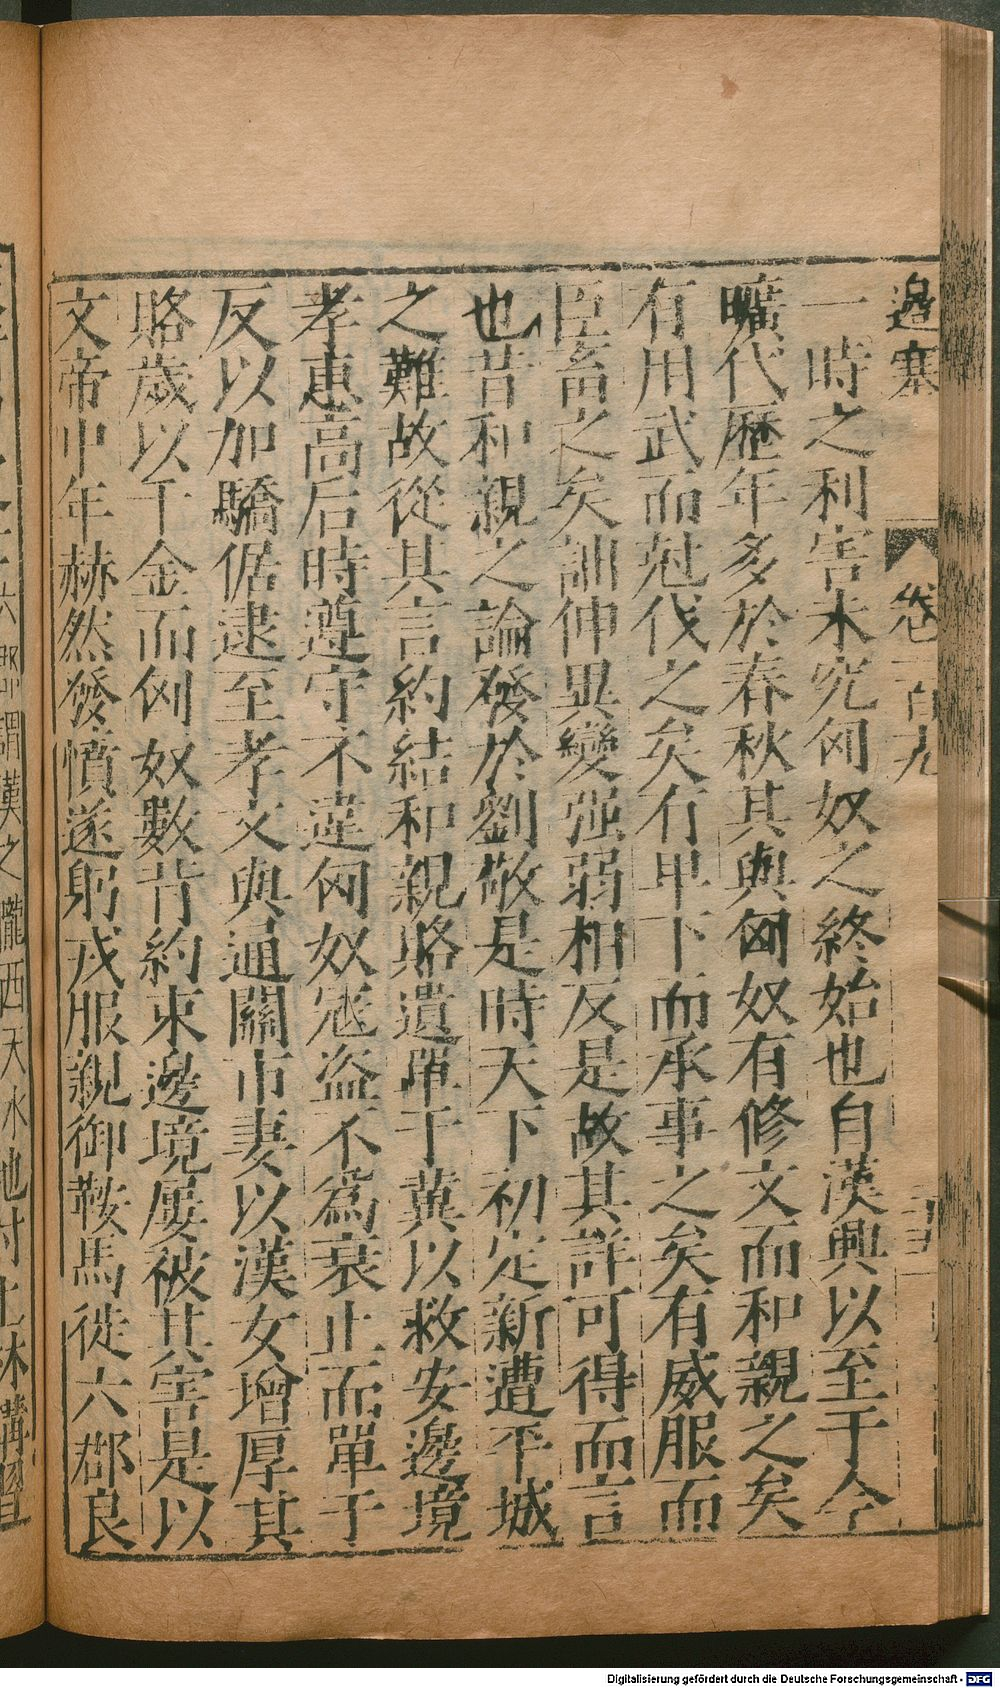 邊塞 卷一百九
一時之利害未究匈奴之終始也自漢興以至于今
曠代歷年多於春秋其與匈奴有修文而和親之矣
有用武而尅伐之矣有甲下而承事之矣有威服而
臣畜之矣詘伸異變强弱相反是故其詳可得而言
也昔和親之論發於劉敬是時天下初定新遭平城
之難故從其言約結和親賂遺單于冀以救安邊境
孝惠高后時遵守不違匈奴寇盗不為衰止而單于
反以加驕倨逮至孝文與通關市妻以漢女增厚其
賂歲以千金而匈奴數背約束邊境屢被其害是以
文帝中年赫然發憤遂躬戎服親御鞍馬從六郡良
六郡謂漢之隴西天水
Digitalisierung gefördert durch die Deutsche Forschungsgemeinschaft - DFG